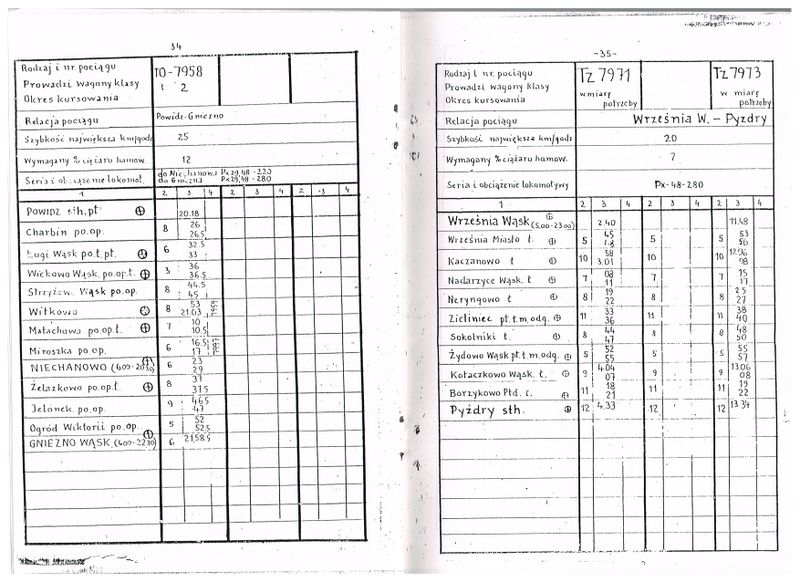 34
Rodzaj i nr. pociągu TO-7958
Prowadzi wagony klasy 1 2
Okres kursowania
Relacja pociągu Powidz-Gniezno
Szybkość największa km/godz 25
Wymagany % ciężaru hamow. 12
Seria i obciążenie lokomot. do Niechanowa Px29,48-220
do Gniezna Px29,48-280
1 2 3 4 2 3 4 2 3 4
Powidz sth.pt 20.18
Charbin po.op. 8 26
26.5
Ługi Wąsk po.t.pt. 6 32.5
33
Wickowo Wąsk. po.op.t. 3 36
36.5
Strzyżew. Wąsk po.op. 8 44.5
45
Witkowo 8 53
21.03 7959
Małachowo po.op.t. 7 10
10.5
Miroszka po.op. 6 16.5
17 7997
NIECHANOWO (600-2030) 6 23
29
Żelazkowo po.op.t. 8 37
37.5
Jelonek po.op. 9 46.5
47
Ogród Wiktorii po.op. 5 52
52.5
GNIEZNO WĄSK (600-2230) 6 21.58.5
-35-
Rodzaj i nr. pociągu TZ 7971 TZ 7973
Prowadzi wagony klasy w miarę w miarę
Okres kursowania potrzeby potrzeby
Relacja pociągu Września W. - Pyzdry
Szybkość największa km/godz 20
Wymagany % ciężaru hamow. 7
Seria i obciążenie lokomotywy Px-48-280
1 2 3 4 2 3 4 2 3 4
Września Wąsk. (5.00-23.00) 2.40 11.48
Września Miasto t. 5 45
48 5 5 53
56
Kaczanowo t 10 58
3.01 10 10 12.06
08
Nadarzyce Wąsk. t 7 08
11 7 7 15
17
Neryngowo t 8 19
22 8 8 25
27
Zieliniec pt.t.m.odg. 11 33
36 11 11 38
40
Sokolniki t. 8 44
47 8 8 48
50
Żydowo Wąsk pt.t.m.odg. 5 52
55 5 5 55
57
Kołaczkowo Wąsk. t. 9 4.04
07 9 9 13.06
08
Borzykowo Płd. t. 11 18
21 11 11 19
22
Pyzdry sth. 12 4.33 12 12 13.34